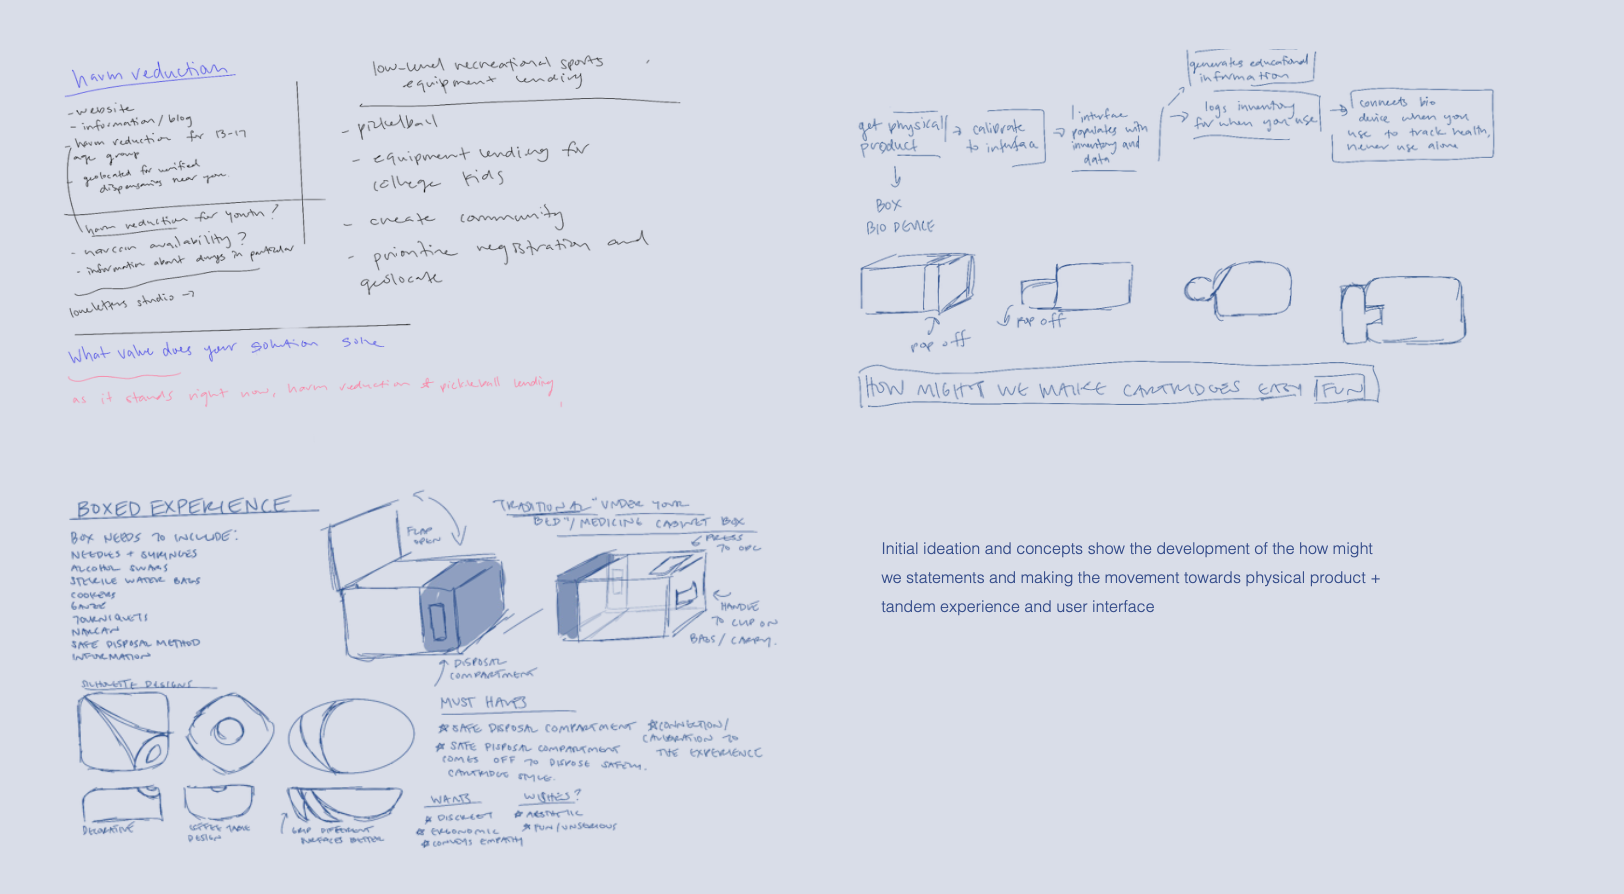 harm reduction
- website
- information/blog
- harm reduction for 13-17
age group
- geolocated for unified
dispensaries near you.
harm reduction for youth?
- narcan availability?
- information about drugs in particular
loveletters studio →
low-level recreational sports
equipment lending
- pickelball
- equipment lending for
college kids
- create community
- prioritize registration and
geolocate
What value does your solution solve
as it stands right now, harm reduction & pickleball lending
get physical
product
→ calibrate
to interface
→ interface
populates with
inventory and
data
generates educational
information
→ logs inventory
for when you use
→ connects bio
device when you
use to track health,
never use alone
BOX
BIO DEVICE
pop off
pop off
HOW MIGHT WE MAKE CARTRIDGES EASY FUN
BOXED EXPERIENCE
BOX NEEDS TO INCLUDE:
NEEDLES + SYRINGES
ALCOHOL SWABS
STERILE WATER BAGS
COOKERS
GAUZE
TOURNIQUETS
NARCAN
SAFE DISPOSAL METHOD
INFORMATION
FLAP
OPEN
DISPOSAL
COMPARTMENT
"TRADITIONAL" UNDER YOUR
BED"/MEDICINE CABINET BOX
PRESS
TO OPEN
HANDLE
TO CLIP ON
BAGS/CARRY.
SILHOUETTE DESIGNS
DECORATIVE
COFFEE TABLE
DESIGN
GRIP DIFFERENT
SURFACES BETTER
MUST HAVES
* SAFE DISPOSAL COMPARTMENT
* SAFE DISPOSAL COMPARTMENT
COMES OFF TO DISPOSE SAFELY.
CARTRIDGE STYLE.
* CONNECTION/
CALIBRATION TO
THE EXPERIENCE
WANTS
* DISCREET
* ERGONOMIC
* CONVEYS EMPATHY
WISHES?
* AESTHETIC
* FUN/UNSERIOUS
Initial ideation and concepts show the development of the how might
we statements and making the movement towards physical product +
tandem experience and user interface